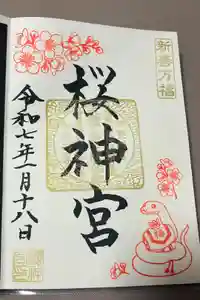 新春万福
桜神宮
令和七年一月十八日